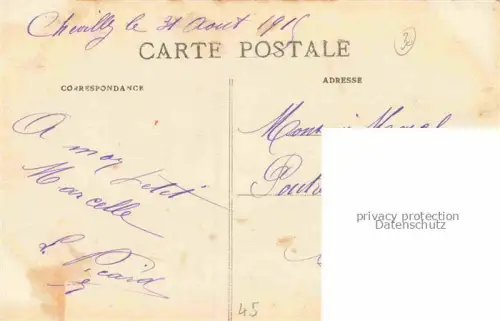 Chevilly le 31 Août 1915
CARTE POSTALE
30
CORRESPONDANCE
ADRESSE
A mon petit
Marcelle
L. Picard
privacy protection
Datenschutz
45